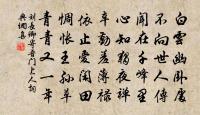 白雲幽臥處
不向世人傳
聞在千峰裡
心知獨夜禪
辛勤羞薄祿
依止愛閒田
惆悵王孫草
青青又一年
劉長卿寄普門上人詞
典網集